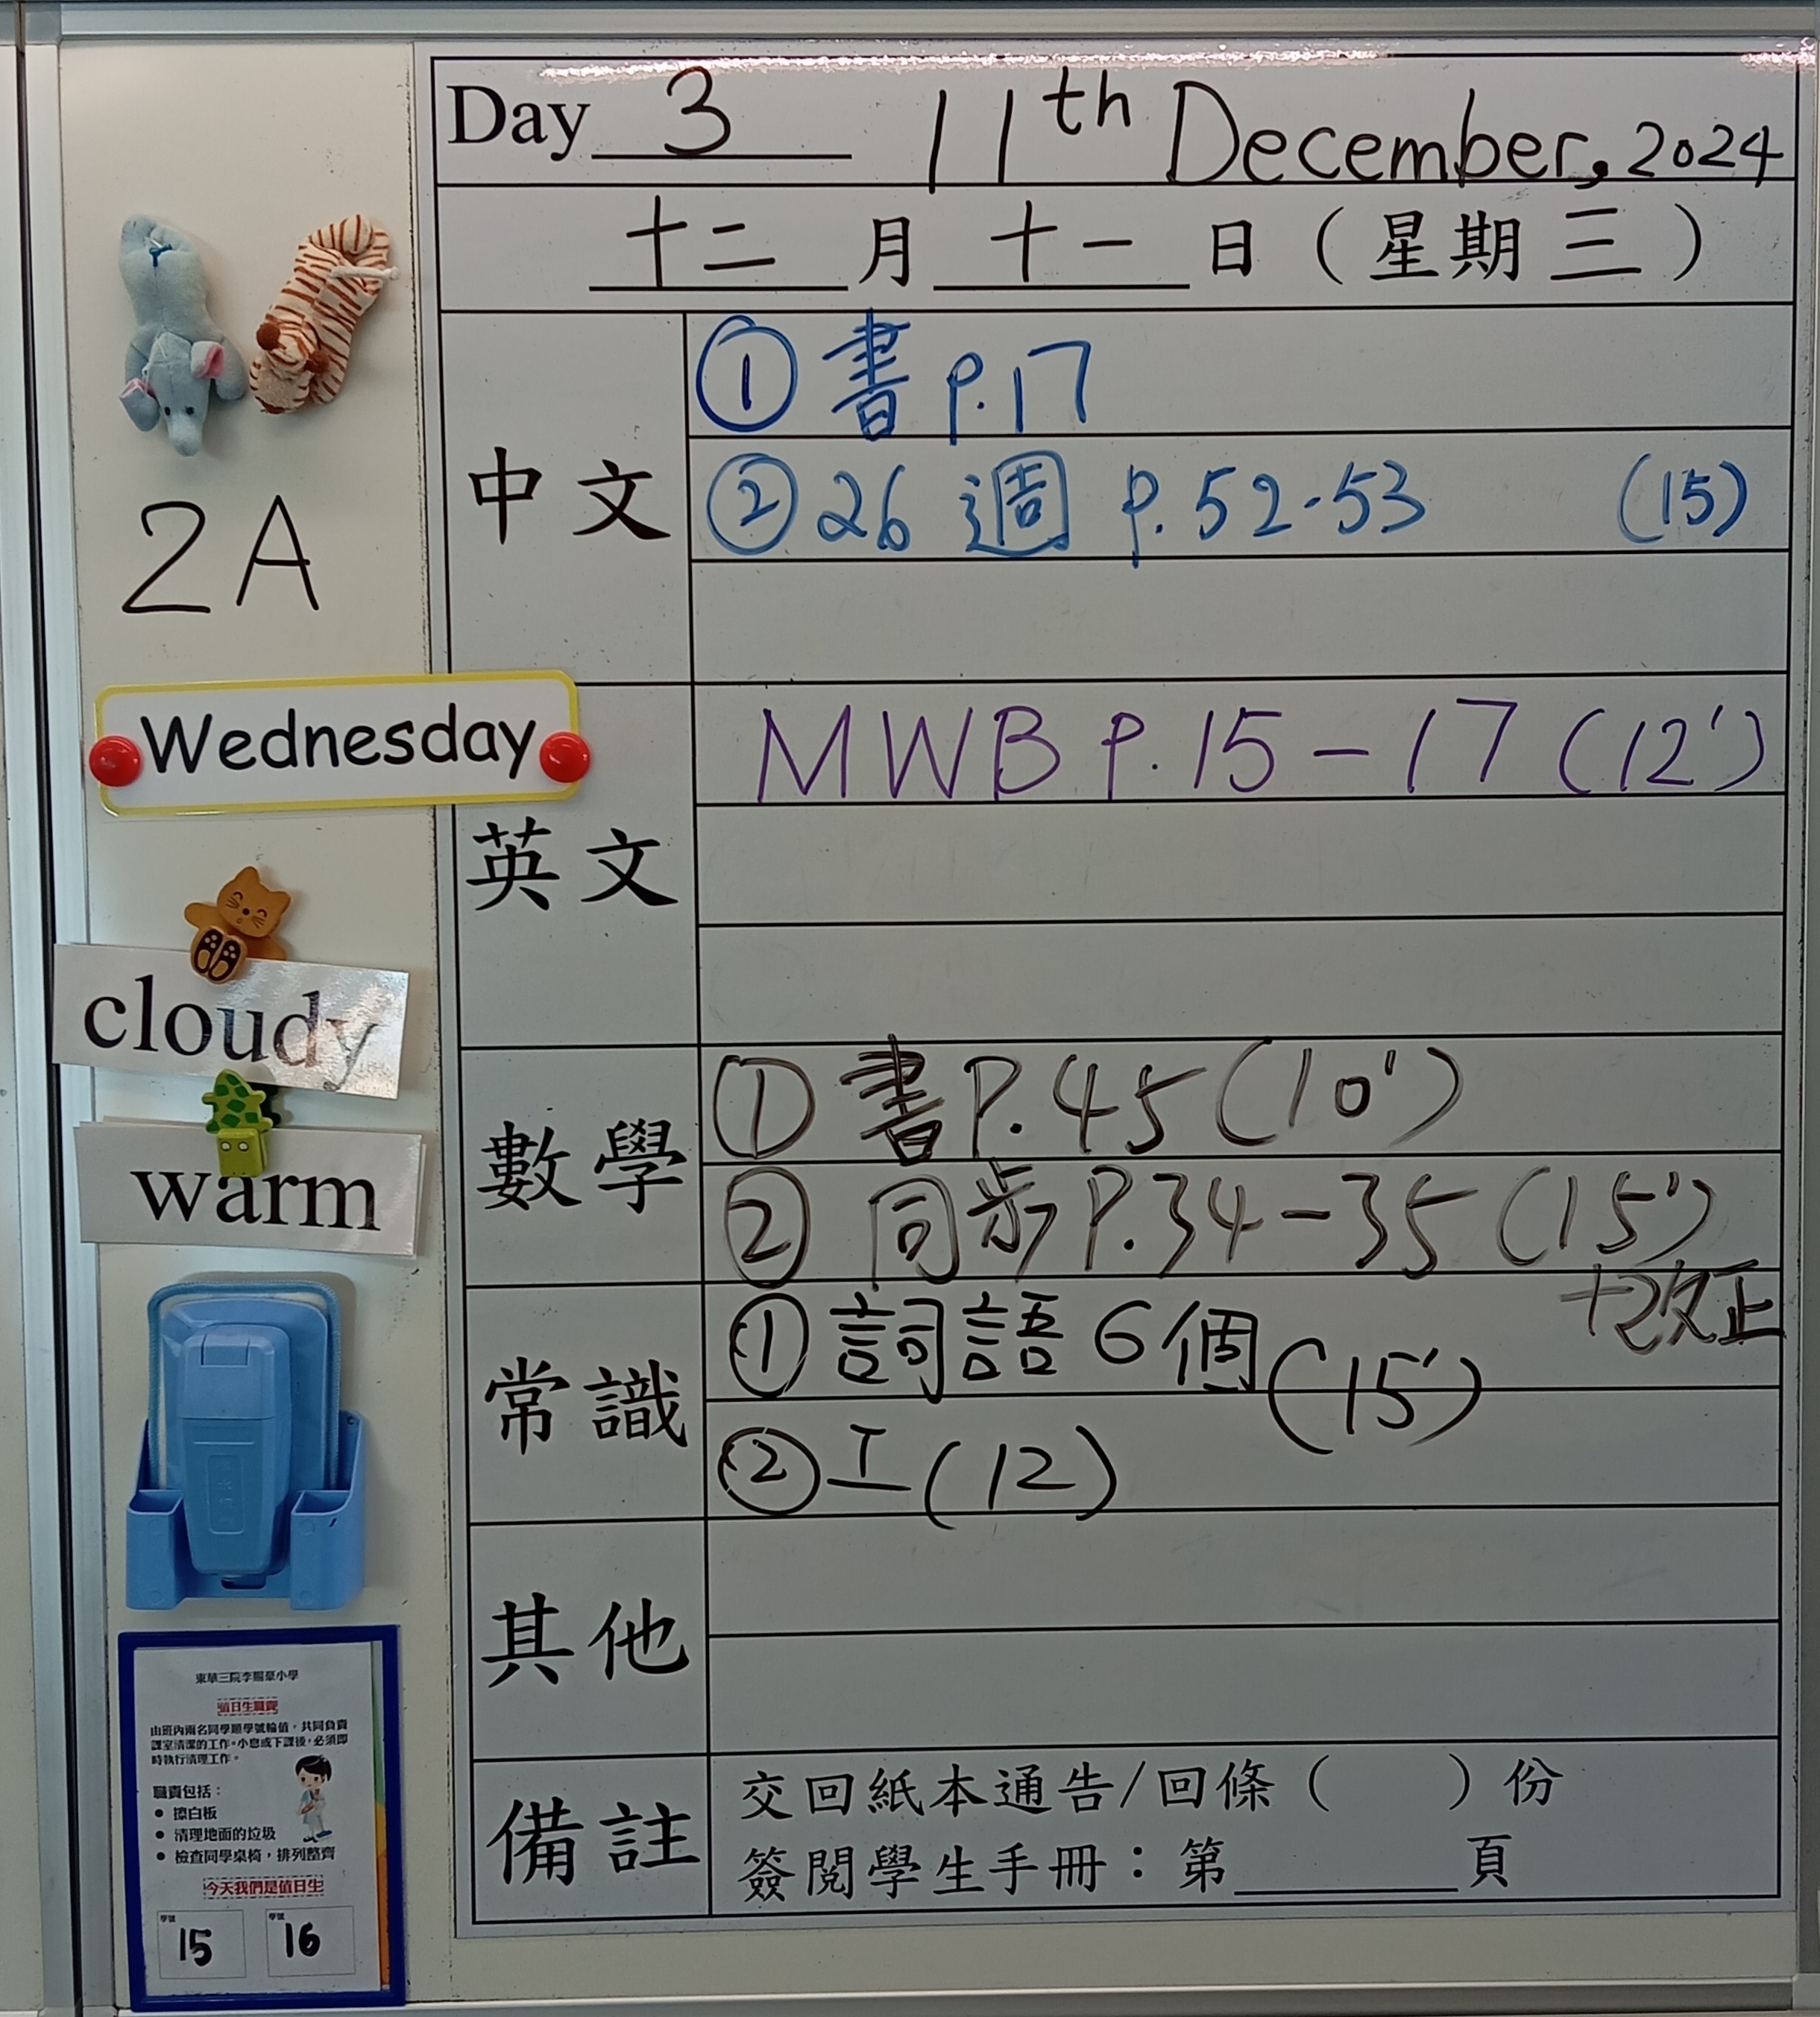 Day 3 11th December, 2024
十二月十一日（星期三）
2A
Wednesday
cloudy
warm
中文
① 書 P.17
② 26 週 P.52-53 (15)
英文
MWB P.15-17 (12')
數學
① 書 P.45 (10')
② 同步 P.34-35 (15')
+改正
常識
① 詞語 6個 (15')
② 工 (12)
其他
備註
交回紙本通告/回條（ ）份
簽閱學生手冊：第______頁
東華三院李賜豪小學
值日生職責
由班內兩名同學順學號輪值，共同負責
課室清潔的工作。小息或下課後，必須即
時執行清理工作。
職責包括：
● 擦白板
● 清理地面的垃圾
● 檢查同學桌椅，排列整齊
今天我們是值日生
學號 學號
15 16